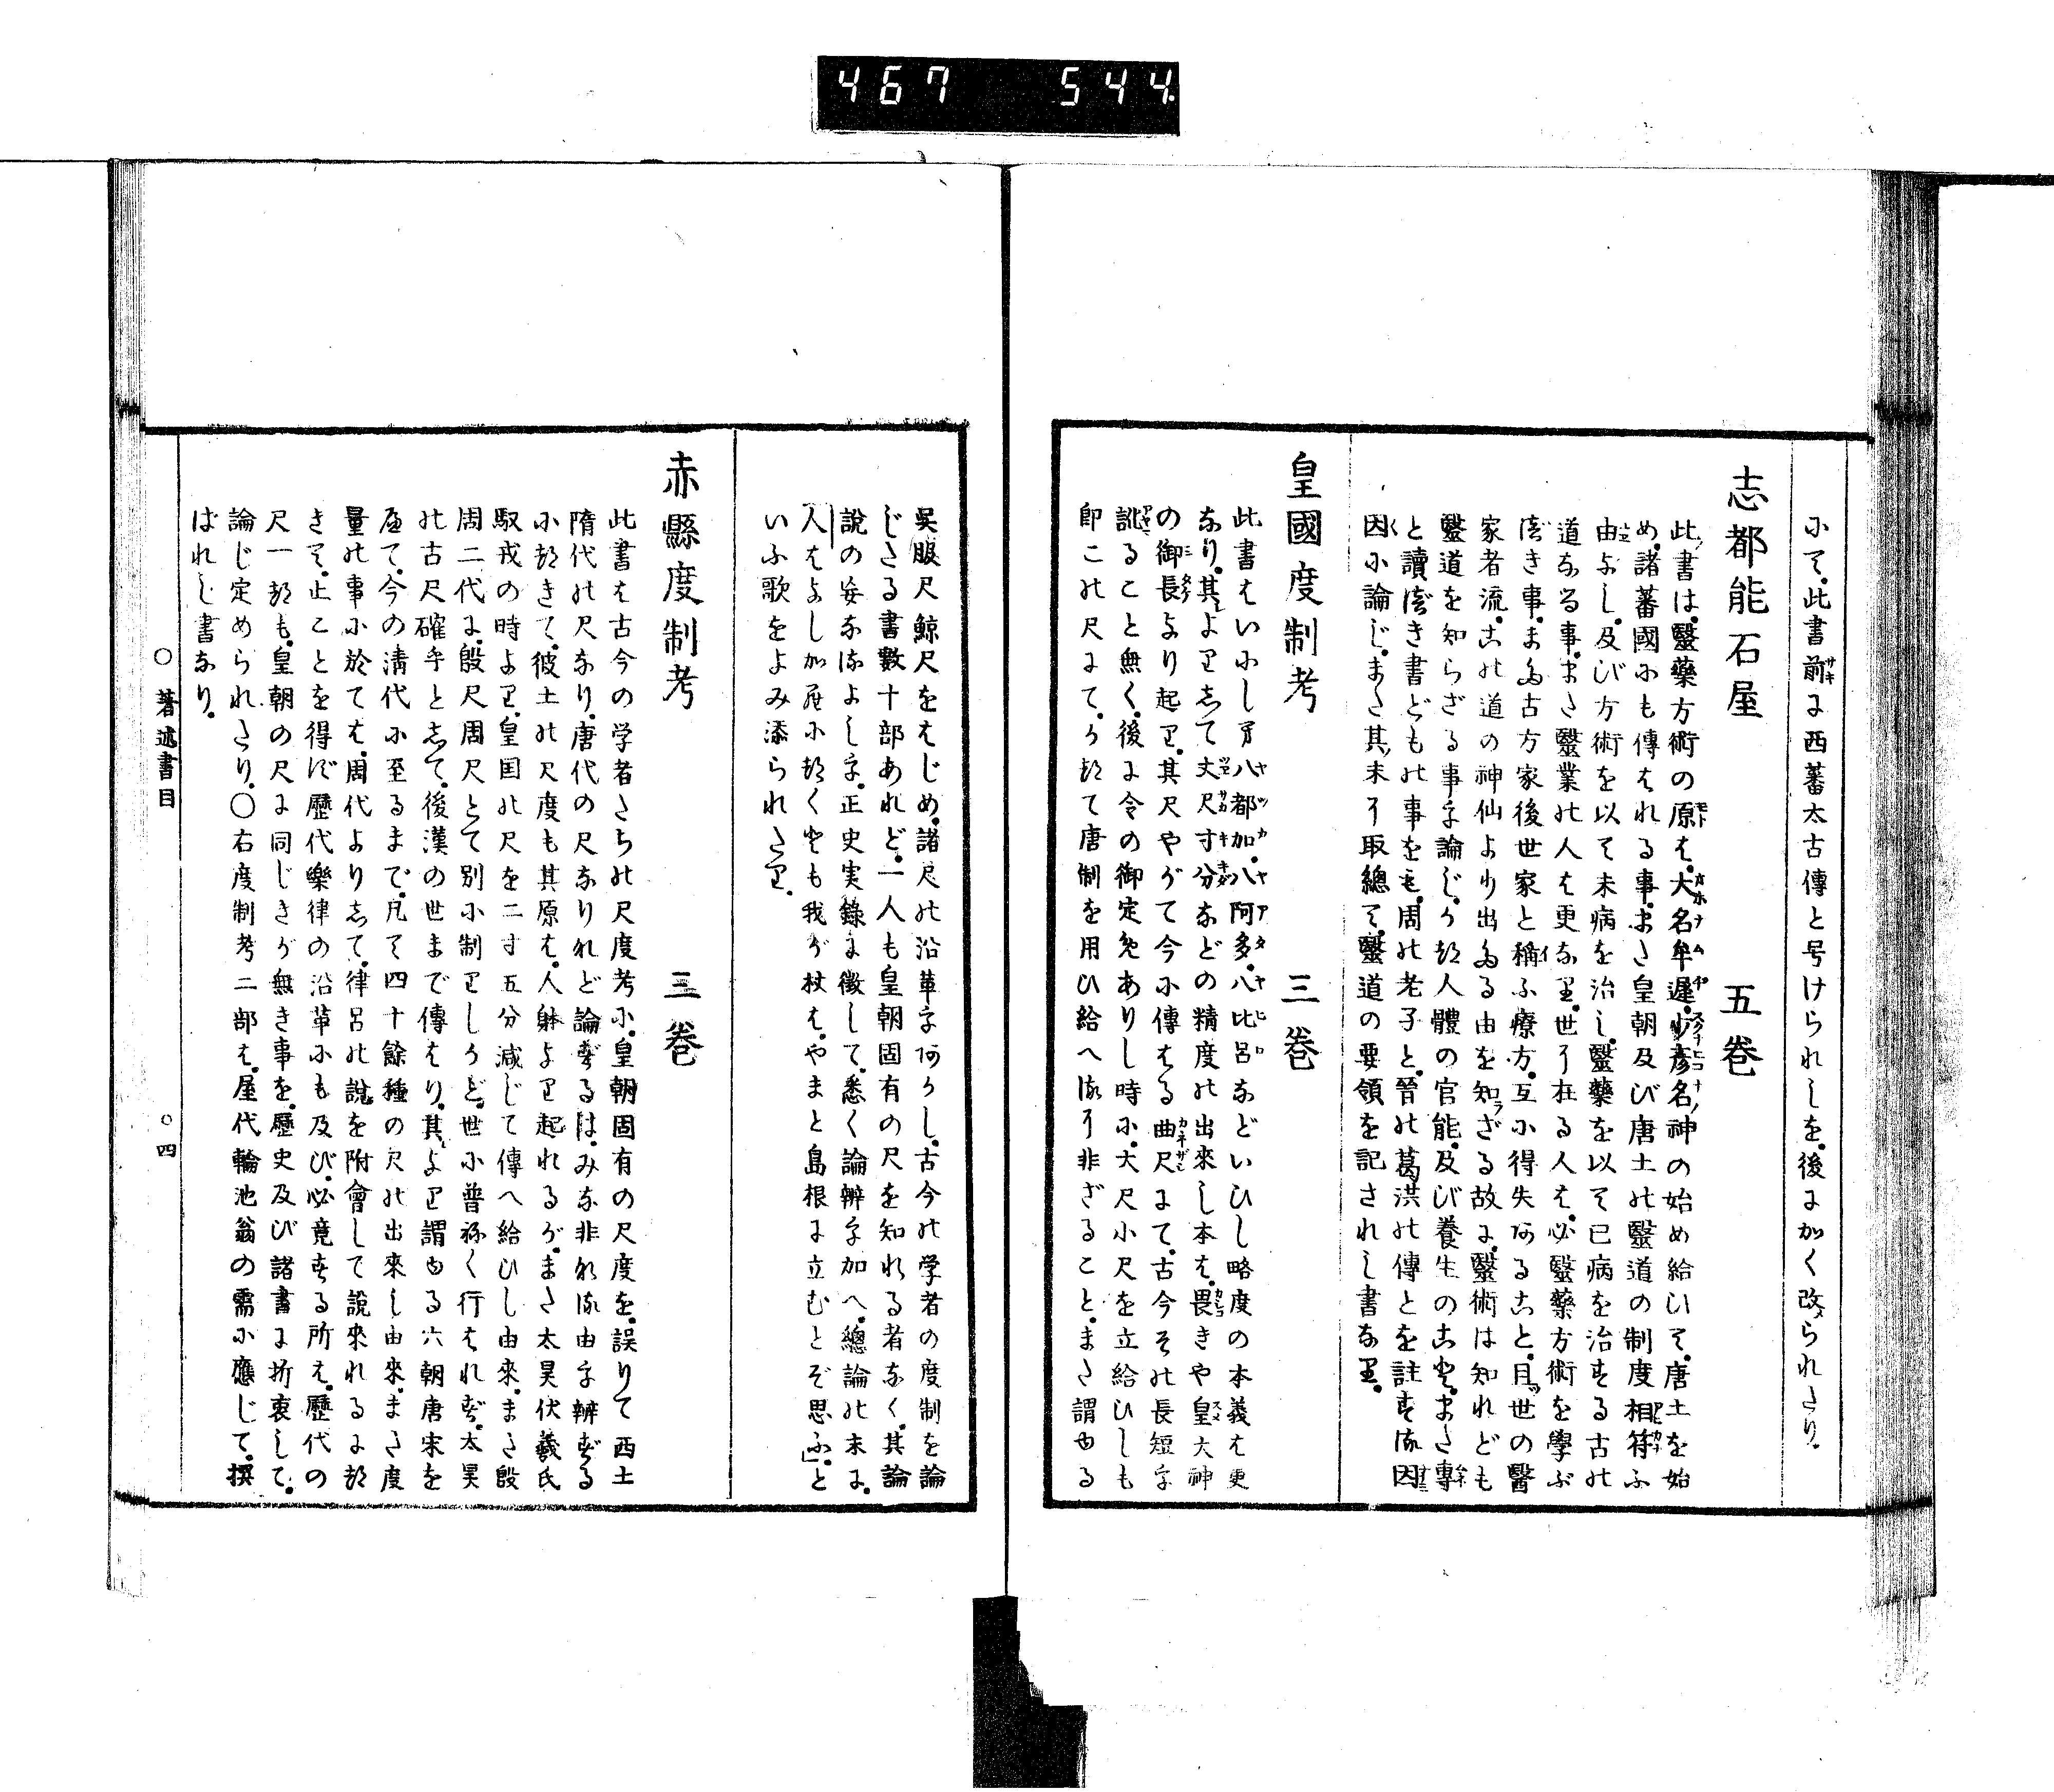 467 544
にて、此書前に西蕃太古傳と号けられしを、後にかく改められたり、
志都能石屋 五巻
此書は、醫藥方術の原は、大名牟遲少彦名神の始め給ひて、唐土を始
め、諸蕃國にも傳はれる事、また皇朝及び唐土の醫道の制度相符ふ
由よし、及び方術を以て未病を治し、醫藥を以て已病を治する古の
道なる事、また醫業の人は更なり、世に在る人は、必醫藥方術を學ぶ
べき事、また古方家後世家と稱ふ療方、互に得失あること、且世の醫
家者流、この道の神仙より出たる由を知ざる故に、醫術は知れども
醫道を知らざる事を論じ、かつ人體の官能、及び養生のこと、また專
と讀べき書どもの事をも、周の老子と、晉の葛洪の傳とを註する因
因に論じ、また其末に取總て、醫道の要領を記されし書なり、
皇國度制考 三巻
此書はいにしへ八都加、八阿多、八比呂などいひし略度の本義は更
なり、其よりして丈尺寸分などの精度の出來し本は、畏きや皇大神
の御長より起り、其尺やがて今に傳はる曲尺にて、古今その長短を
訛ること無く、後に令の御定免ありし時に、大尺小尺を立給ひしも
即この尺にて、かつて唐制を用ひ給へるに非ざること、また謂ゆる
呉服尺鯨尺をはじめ、諸尺の沿革を何かし、古今の学者の度制を論
じたる書數十部あれど、一人も皇朝固有の尺を知れる者なく、其論
説の妄なるよしを、正史実錄に徴して、悉く論辨を加へ、總論の末に、
人はよしかにかくとも我が杖は、やまと島根に立むとぞ思ふ」と
いふ歌をよみ添られたり、
赤縣度制考 三巻
此書は古今の学者たちの尺度考に、皇朝固有の尺度を、誤りて西土
隋代の尺なり、唐代の尺なりなど論ずるは、みな非なる由を辨ずる
につきて、彼土の尺度も其原は、人躰より起れるが、また太昊伏羲氏
馭戎の時より、皇国の尺を二寸五分減じて傳へ給ひし由來、また殷
周二代に、殷尺周尺とて別に制りしかど、世に普ねく行はれず、太昊
の古尺確乎として、後漢の世まで傳はり、其より謂ゆる六朝唐宋を
歴て、今の淸代に至るまで、凡て四十餘種の尺の出來し由來、また度
量の事に於ては、周代よりして、律呂の說を附會して說來れるにつ
きて、止ことを得ず歷代樂律の沿革にも及び、必竟する所は、歷代の
尺一つも、皇朝の尺に同じきが無き事を、歷史及び諸書に折衷して、
論じ定められたり、〇右度制考二部は、屋代輪池翁の需に應じて、撰
ばれし書なり、
〇 著述書目 〇四